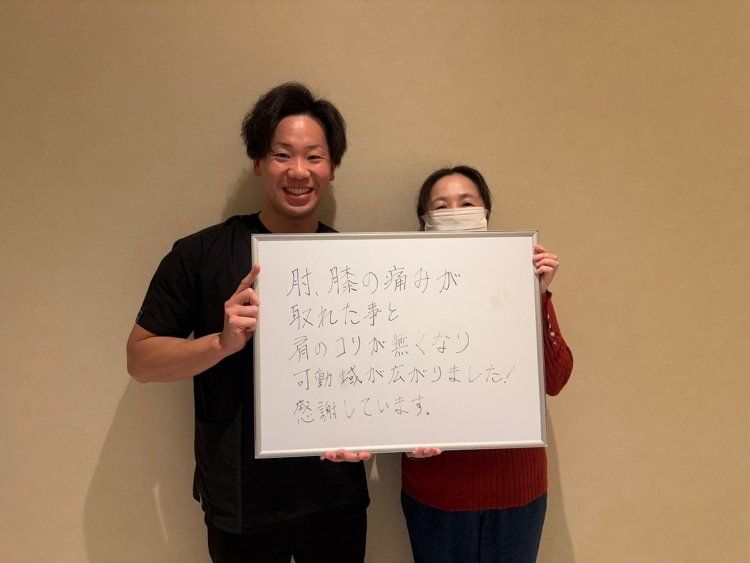 肘、膝の痛みが
取れた事と
肩のコリが無くなり
可動域が広がりました!
感謝しています。